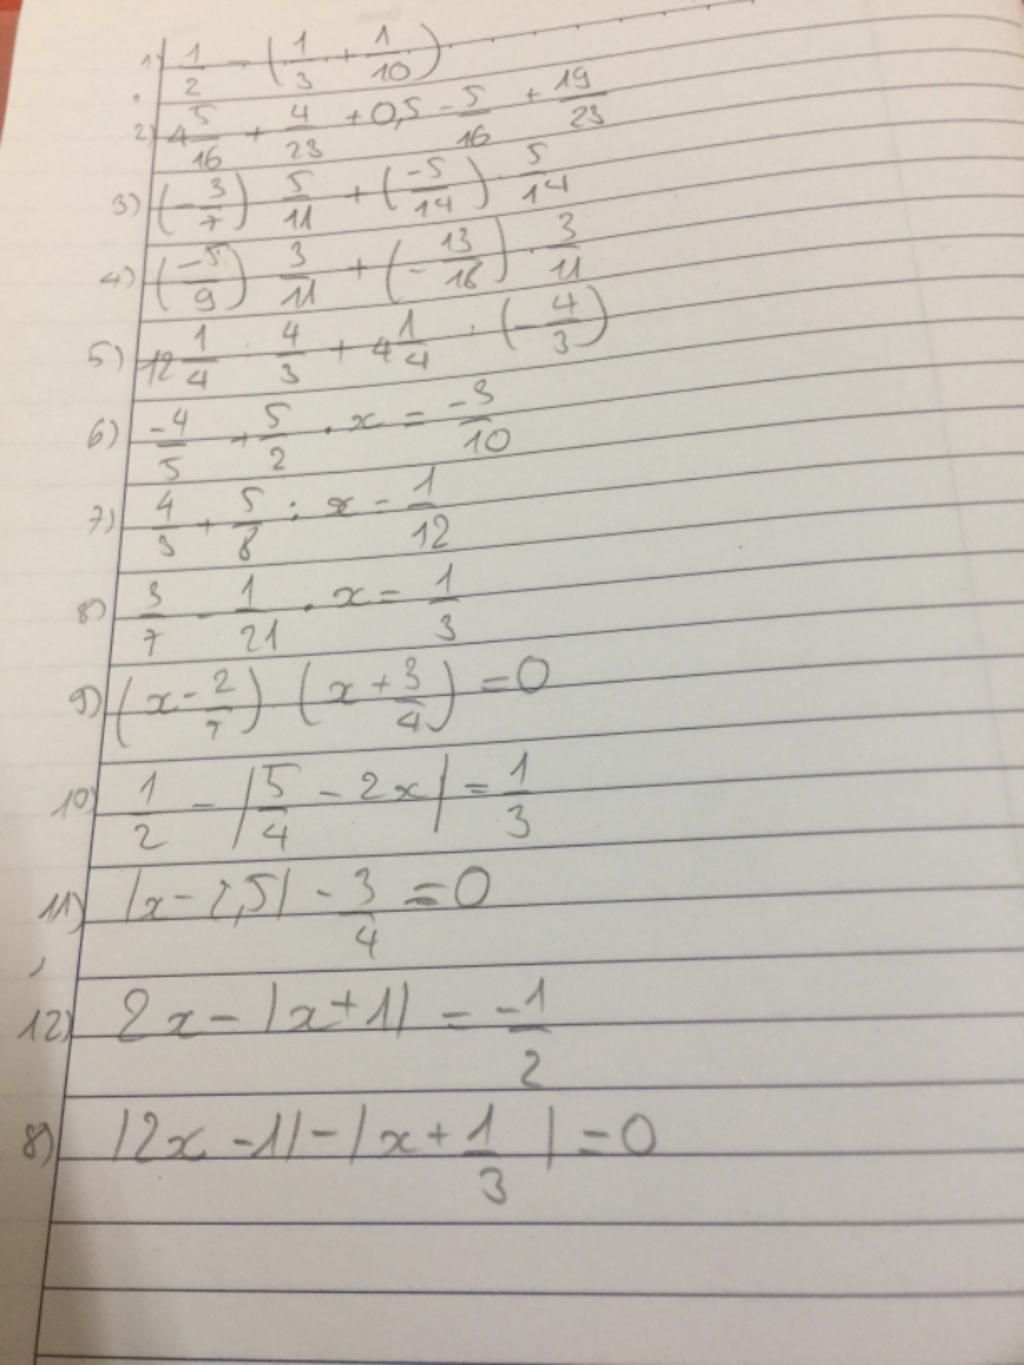 1) 1/2 - (1/3 + 1/10)
2) 4 5/16 + 4/23 + 0,5 - 5/16 + 19/23
3) (-3/7) 5/11 + (-5/14) · 5/14
4) (-5/9) 3/11 + (-13/18) · 3/11
5) 12 1/4 · 4/3 + 4 1/4 · (-4/3)
6) -4/5 + 5/2 · x = -3/10
7) 4/3 + 5/8 : x = 1/12
8) 3/7 - 1/21 · x = 1/3
9) (x - 2/7) · (x + 3/4) = 0
10) 1/2 - |5/4 - 2x| = 1/3
11) |x - 2,5| - 3/4 = 0
12) 2x - |x + 1| = -1/2
8) |2x - 1| - |x + 1/3| = 0